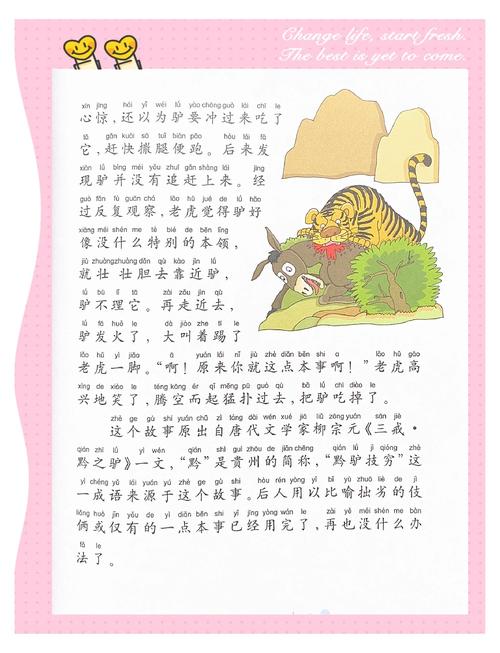 Change life, start fresh.
The best is yet to come.
xīn jīng hái yǐ wéi lǘ yào chōng guò lái chī le
心惊，还以为驴要冲过来吃了
tā gǎn kuài sā tuǐ biàn pǎo hòu lái fā
它，赶快撒腿便跑。后来发
xiàn lǘ bìng méi yǒu zhuī gǎn shàng lái jīng
现驴并没有追赶上来。经
guò fǎn fù guān chá lǎo hǔ jué de lǘ hǎo
过反复观察，老虎觉得驴好
xiàng méi shén me tè bié de běn lǐng
像没什么特别的本领，
jiù zhuàng zhuàng dǎn qù kào jìn lǘ
就壮壮胆去靠近驴，
lǘ bù lǐ tā zài zǒu jìn qù
驴不理它。再走近去，
lǘ fā huǒ le dà jiào zhe tī le
驴发火了，大叫着踢了
lǎo hǔ yì jiǎo a yuán lái nǐ jiù zhè diǎn běn shi a lǎo hǔ gāo
老虎一脚。“啊！原来你就这点本事啊！”老虎高
xìng de xiào le téng kōng ér qǐ měng pū guò qù bǎ lǘ chī diào le
兴地笑了，腾空而起猛扑过去，把驴吃掉了。
zhè ge gù shi yuán chū zì táng dài wén xué jiā liǔ zōng yuán sān jiè
这个故事原出自唐代文学家柳宗元《三戒·
qián zhī lǘ yì wén qián shì guì zhōu de jiǎn chēng qián lǘ jì qióng zhè
黔之驴》一文，“黔”是贵州的简称，“黔驴技穷”这
yì chéng yǔ lái yuán yú zhè ge gù shi hòu rén yòng yǐ bǐ yù zhuō liè de jì
一成语来源于这个故事。后人用以比喻拙劣的伎
liǎng huò jǐn yǒu de yì diǎn běn shi yǐ jīng yòng wán le zài yě méi shén me bàn
俩或仅有的一点本事已经用完了，再也没什么办
fǎ le
法了。